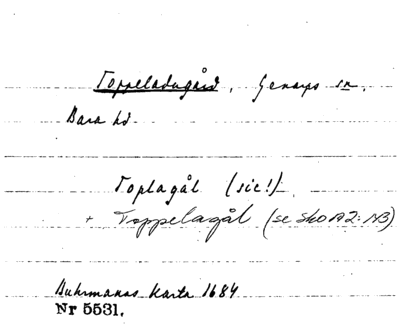 Toppeladugård, Genarps sn.
Bara hd
Toplagål (sic!)
+ Toppelagål (se SkO A2:113)
Buhrmanns Karta 1684
Nr 5531.